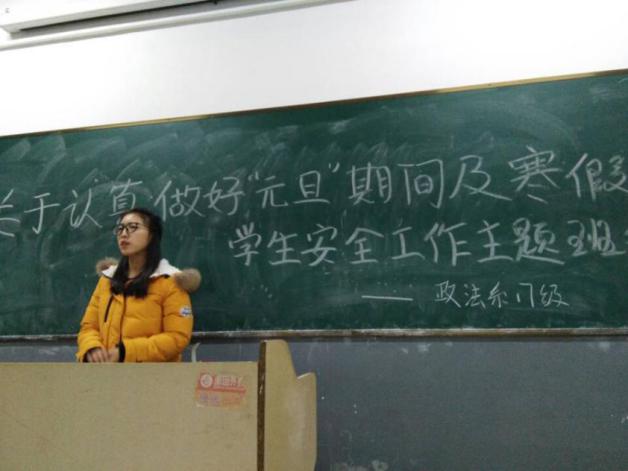 关于认真做好“元旦”期间及寒假
学生安全工作主题班
—— 政法系17级